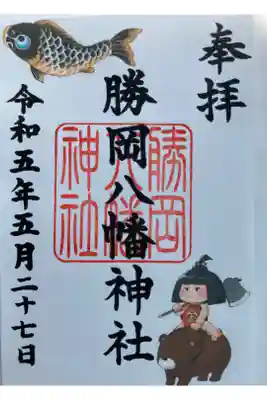 奉拝
勝岡八幡神社
勝岡八幡神社
令和五年五月二十七日